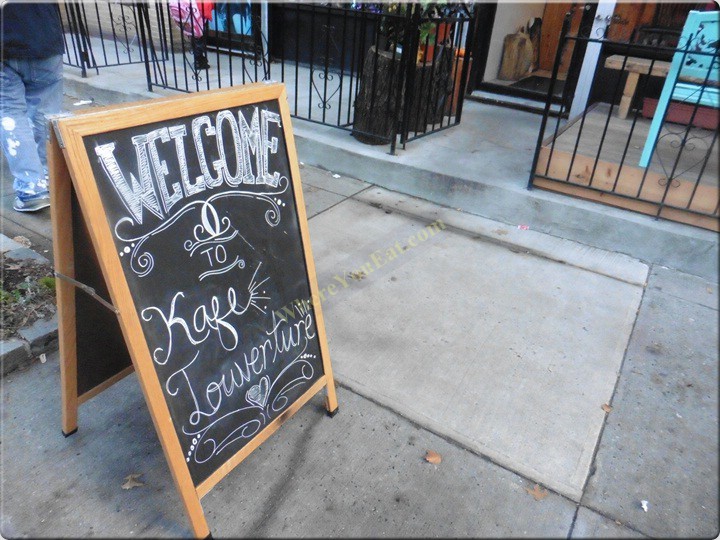 WELCOME
TO
Kafe
Louverture
WhereYouEat.com